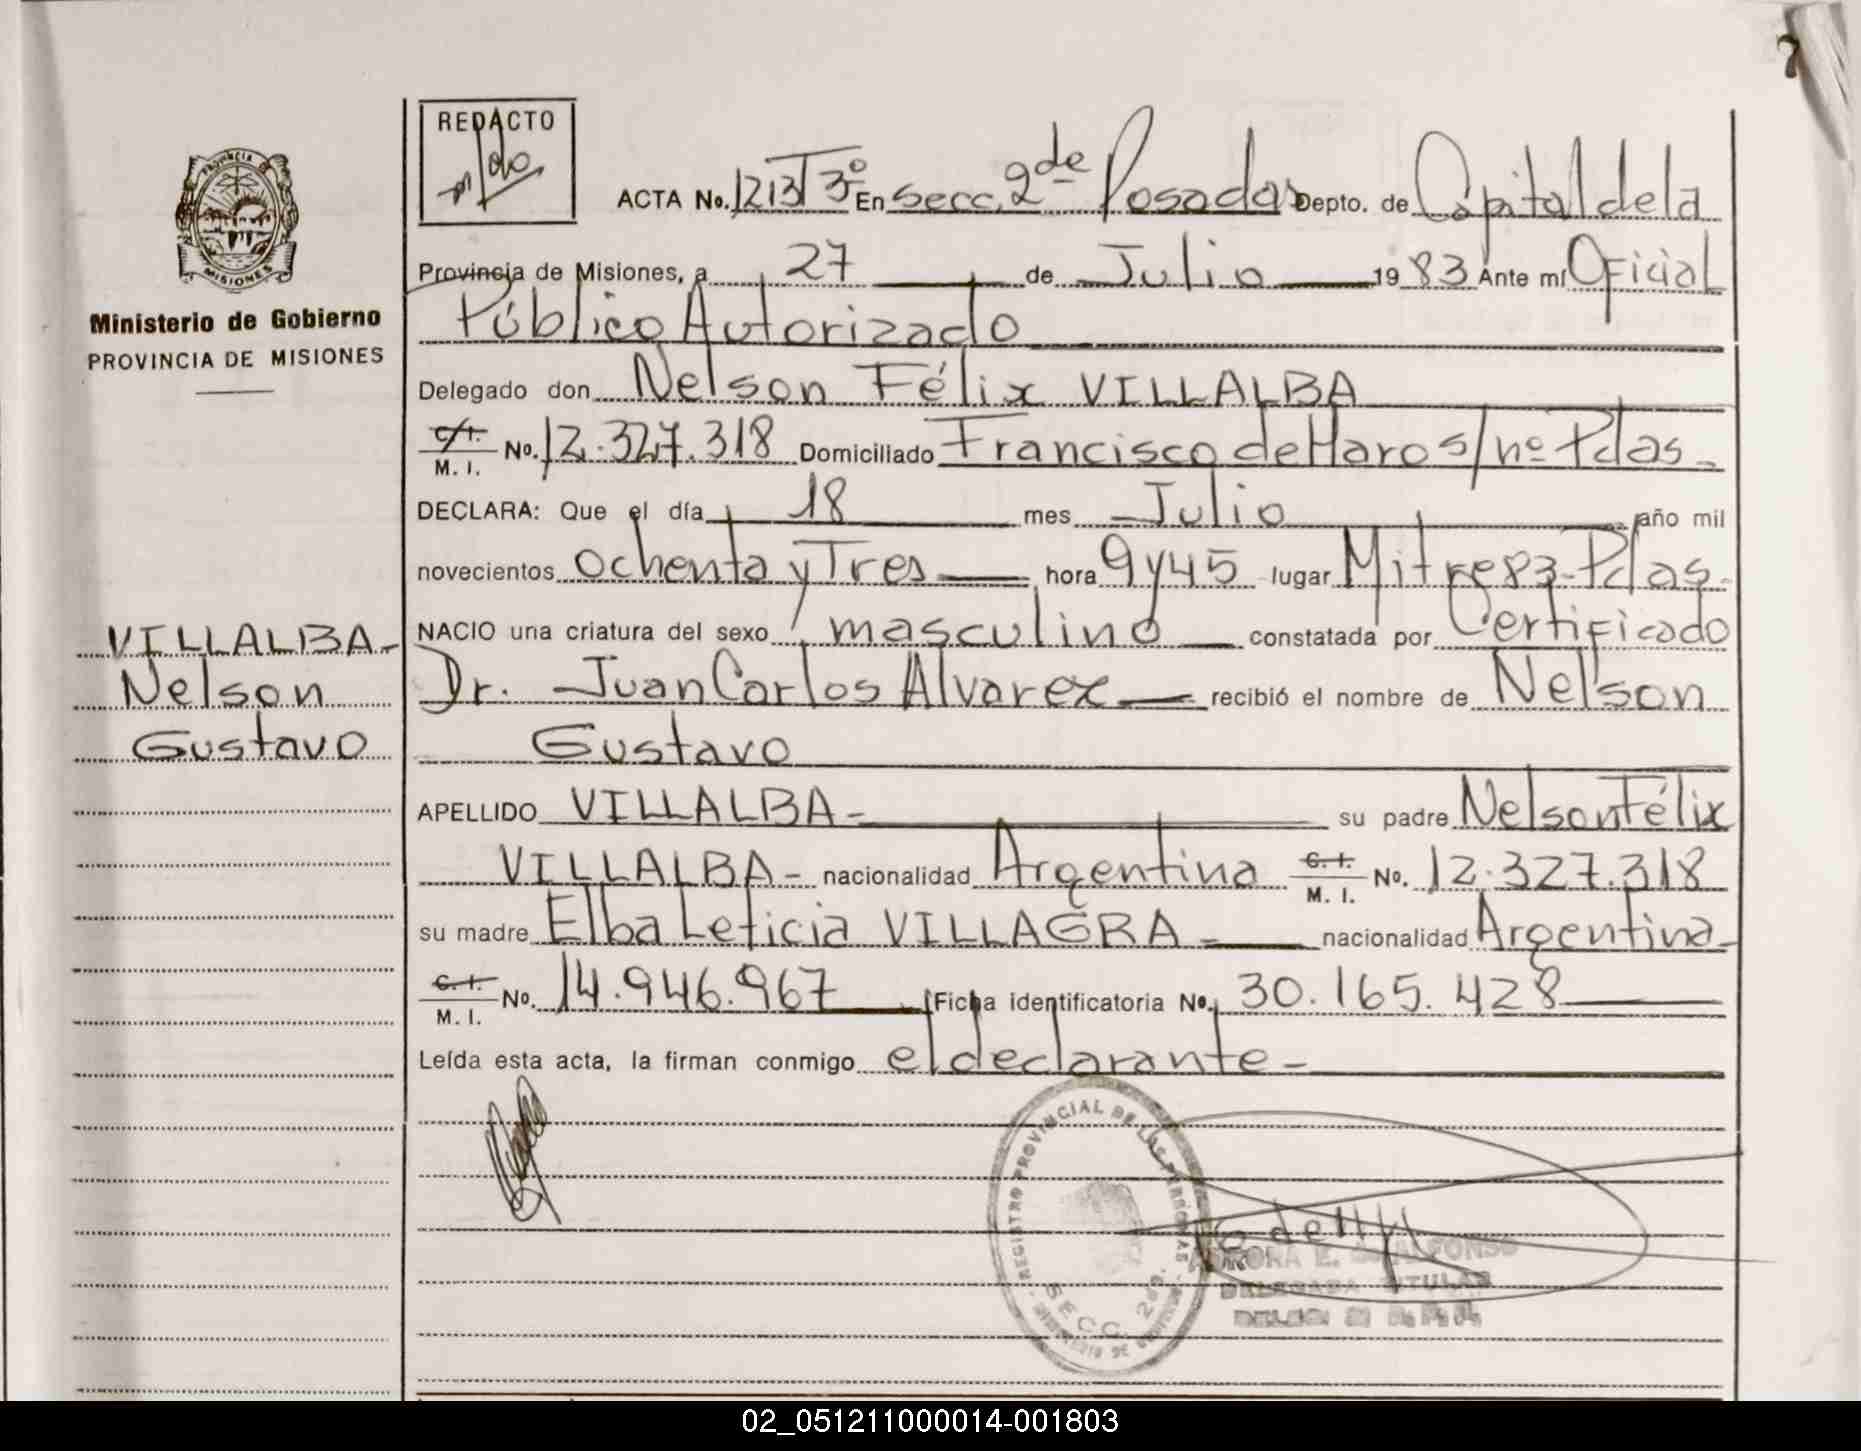 7
REDACTO
PROVINCIA DE
MISIONES
Ministerio de Gobierno
PROVINCIA DE MISIONES
ACTA No. 1213 T 3º En Secc. 2 de Posadas Depto. de Capital de la
Provincia de Misiones, a 27 de Julio 1983 Ante mí Oficial
Público Autorizado
Delegado don Nelson Félix VILLALBA
C.I. M. I. No. 12.327.318 Domiciliado Francisco de Haro s/nº Pdas-
DECLARA: Que el día 18 mes Julio año mil
novecientos ochenta y Tres hora 9 y 45 lugar Mitre 83-Pdas-
NACIO una criatura del sexo masculino constatada por Certificado
Dr. Juan Carlos Alvarez recibió el nombre de Nelson
Gustavo
VILLALBA-
Nelson
Gustavo
APELLIDO VILLALBA- su padre Nelson Félix
VILLALBA- nacionalidad Argentina C.I. M. I. No. 12.327.318
su madre Elba Leticia VILLAGRA- nacionalidad Argentina-
C.I. M. I. No. 14.946.967 Ficha identificatoria No. 30.165.428
Leída esta acta, la firman conmigo el declarante-
REGISTRO PROVINCIAL DE LAS PERSONAS
SECC. 2da.
DELEGADA TITULAR
02_051211000014-001803